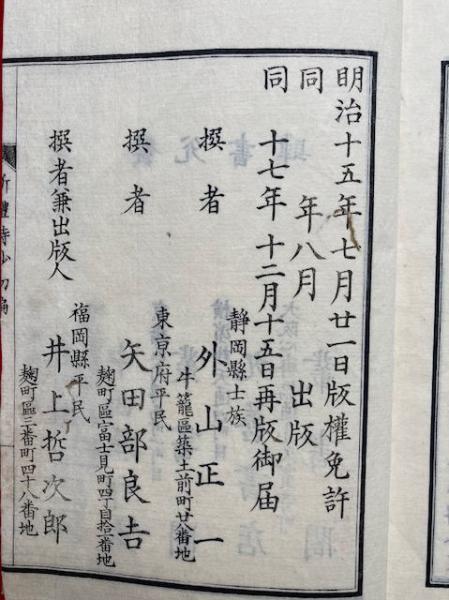 明治十五年七月廿一日版權免許
同 年八月 出版
同 十七年十二月十五日再版御届
靜岡縣士族
撰者 外山正一
牛籠區築土前町廿八番地
東京府平民
撰者 矢田部良吉
麹町區富士見町四丁目拾番地
福岡縣平民
撰者兼出版人 井上哲次郎
麹町區三番町四十八番地
新體詩抄初編